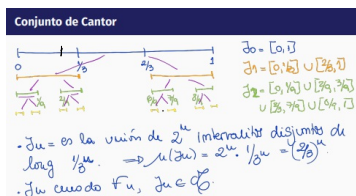 Conjunto de Cantor
J₀ = [0,1]
0 1/3 2/3 1
J1 = [0,1/3] ∪ [2/3,1]
J2 = [0,1/9] ∪ [2/9,3/9]
∪ [6/9,7/9] ∪ [8/9,1]
• Jn = es la unión de 2ⁿ intervalitos disjuntos de
long 1/3ⁿ. ⟹ μ(Jn) = 2ⁿ · 1/3ⁿ = (2/3)ⁿ
• Jn cerrado ∀n, Jn ∈